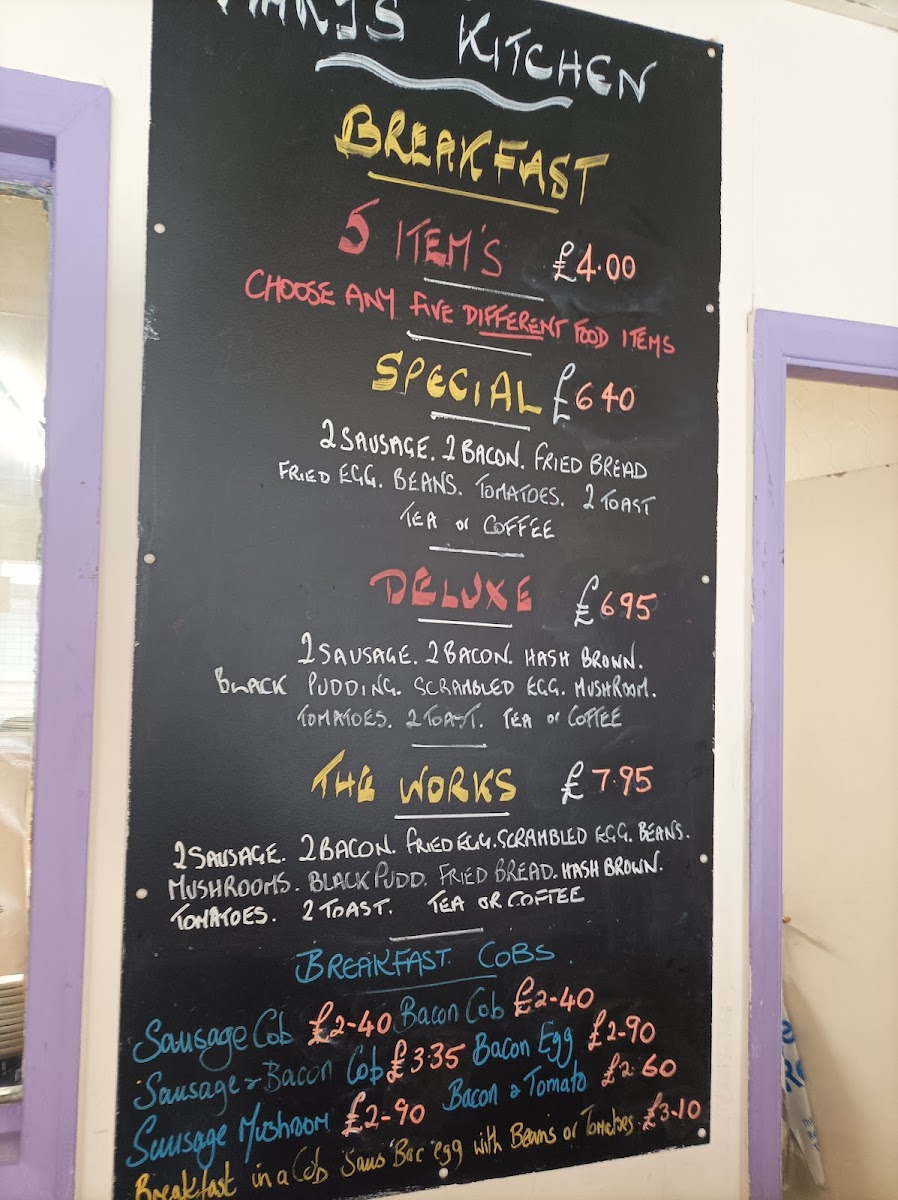 KITCHEN
BREAKFAST
5 ITEM'S £4.00
CHOOSE ANY FIVE DIFFERENT FOOD ITEMS
SPECIAL £6 40
2 SAUSAGE. 2 BACON. FRIED BREAD
FRIED EGG. BEANS. TOMATOES. 2 TOAST
TEA or COFFEE
DELUXE £6 95
2 SAUSAGE. 2 BACON. HASH BROWN.
BLACK PUDDING. SCRAMBLED EGG. MUSHROOM.
TOMATOES. 2 TOAST. TEA or COFFEE
THE WORKS £7.95
2 SAUSAGE. 2 BACON. FRIED EGG. SCRAMBLED EGG. BEANS.
MUSHROOMS. BLACK PUDD. FRIED BREAD. HASH BROWN.
TOMATOES. 2 TOAST. TEA OR COFFEE
BREAKFAST COBS.
Sausage Cob £2-40 Bacon Cob £2-40
Sausage & Bacon Cob £3.35 Bacon Egg £2-90
Sausage Mushroom £2-90 Bacon & Tomato £2.60
Breakfast in a Cob Saus Bac egg with Beans or Tomatoes £3-10